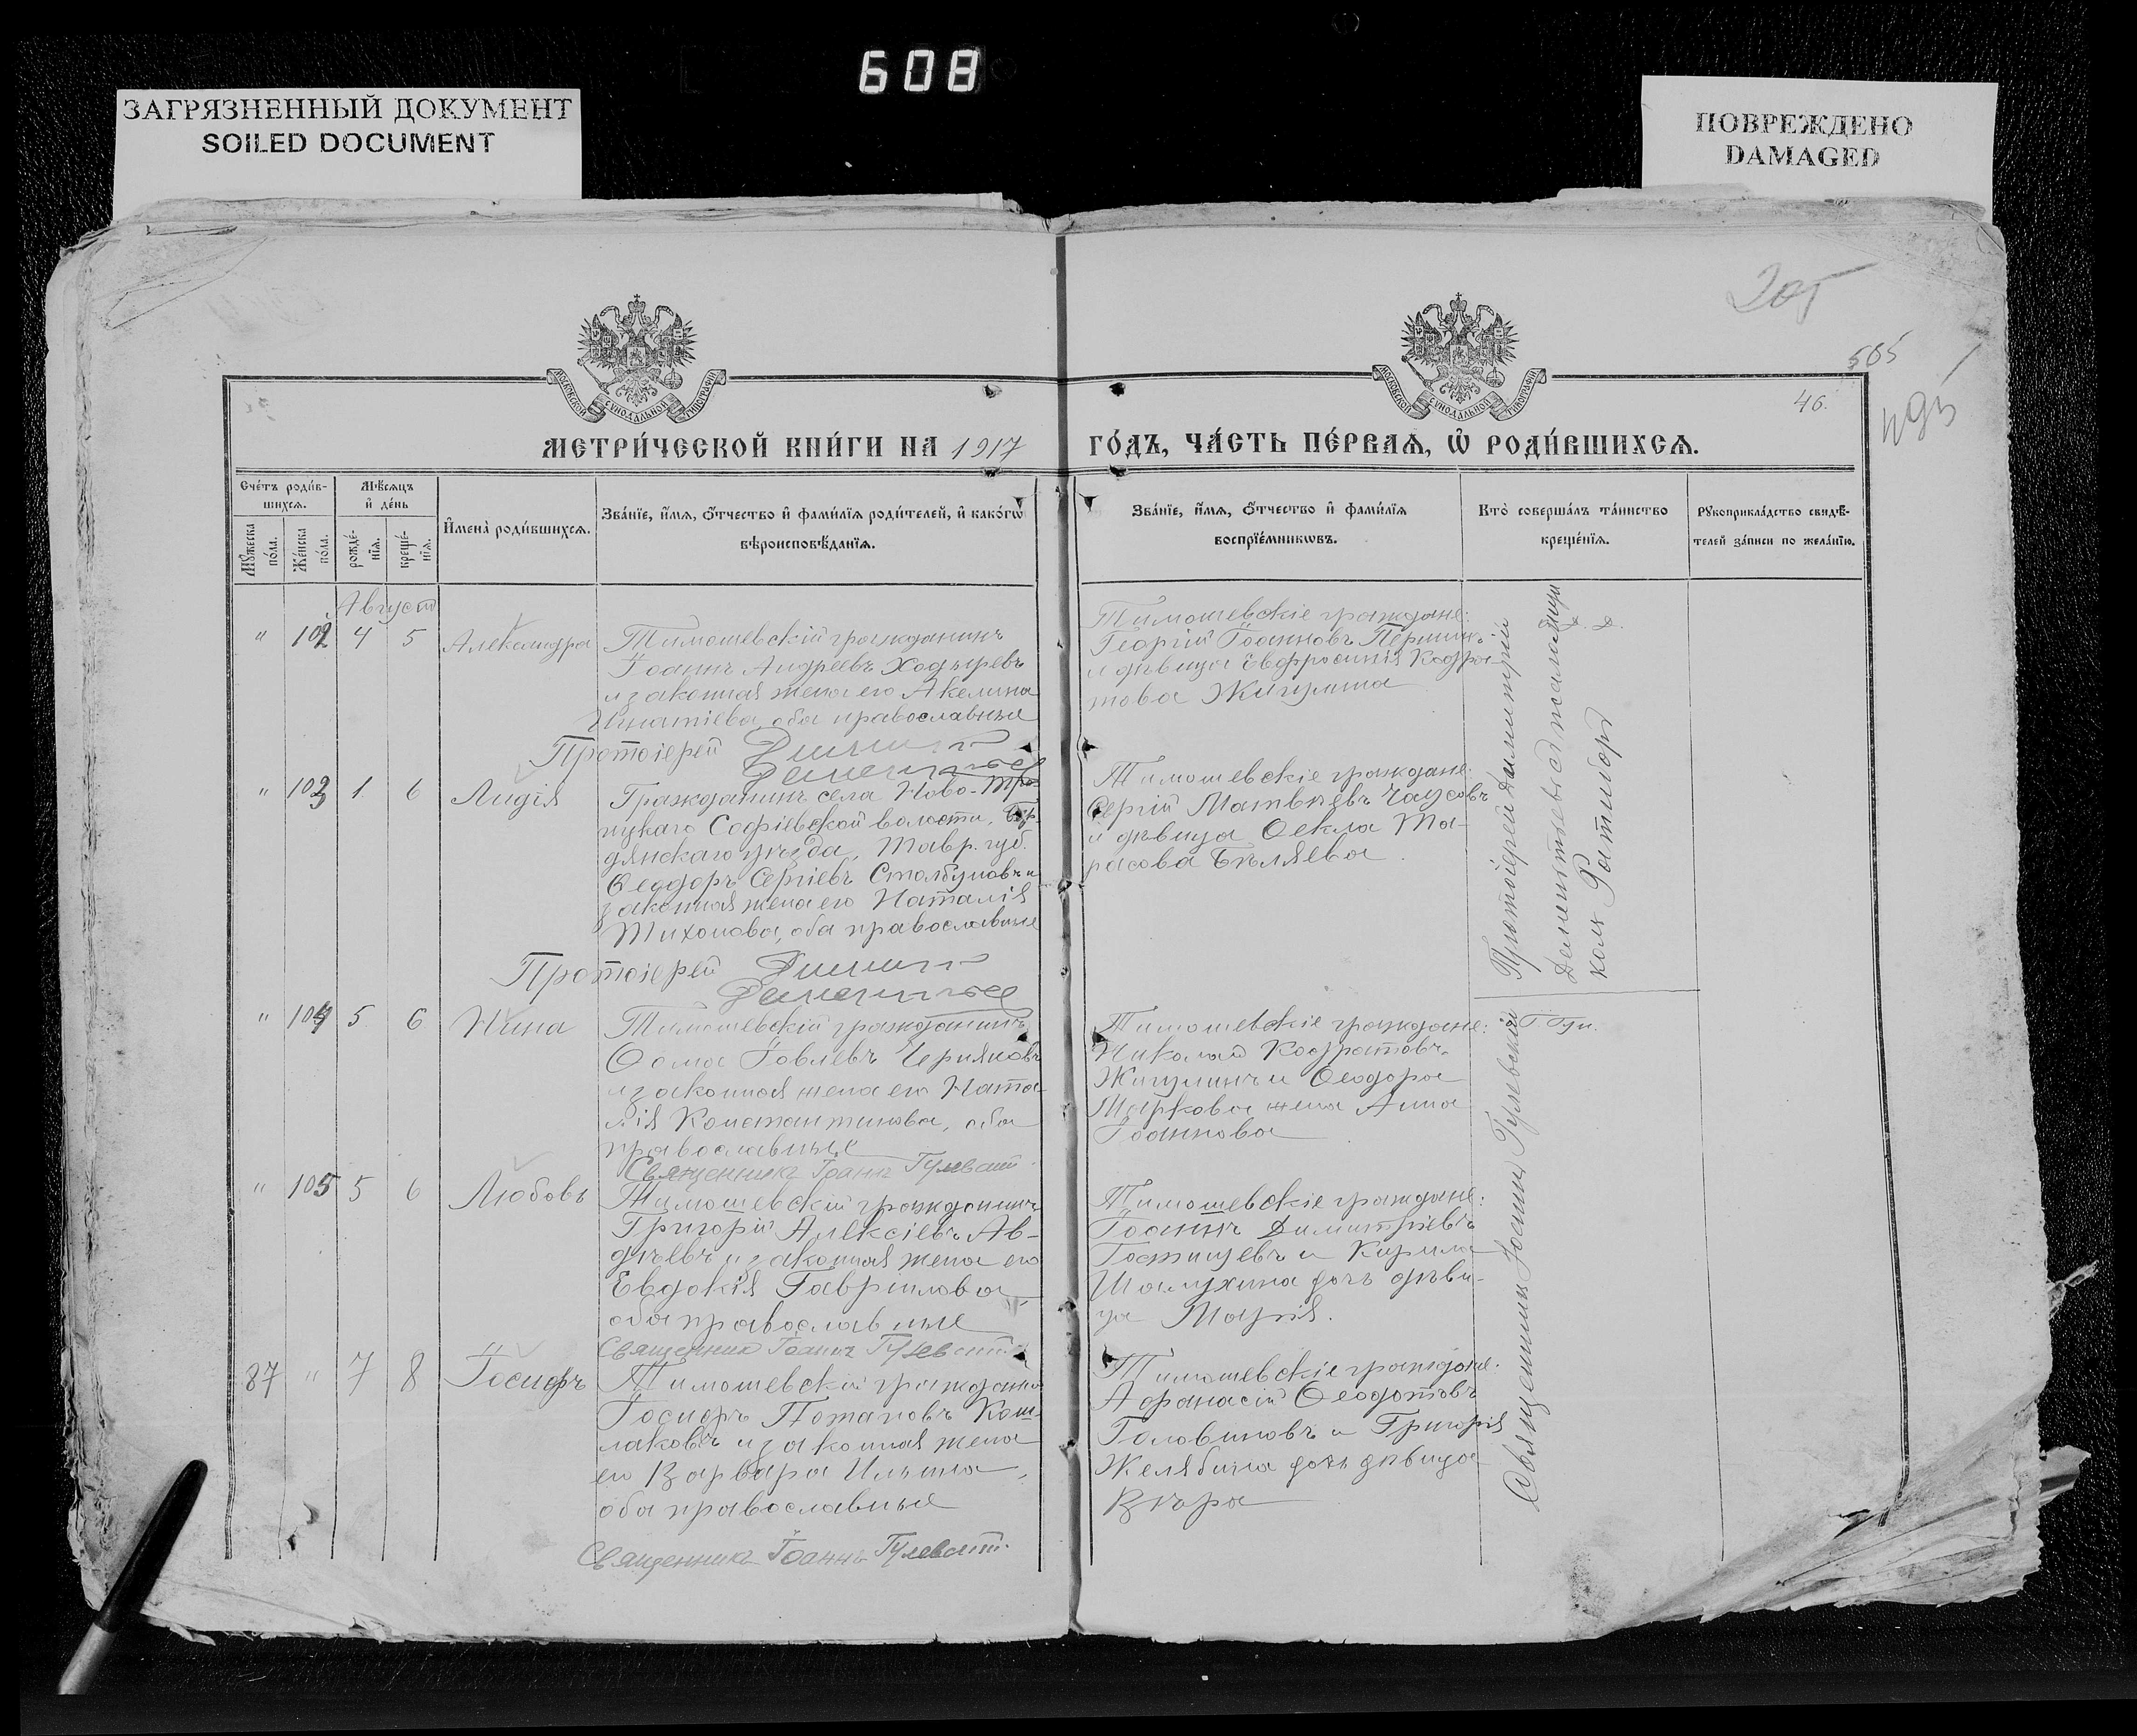 608
ЗАГРЯЗНЕННЫЙ ДОКУМЕНТ
SOILED DOCUMENT
ПОВРЕЖДЕНО
DAMAGED
205
505
46.
МОСКОВСКОЙ СѴНОДАЛЬНОЙ ТИПОГРАФІИ
МОСКОВСКОЙ СѴНОДАЛЬНОЙ ТИПОГРАФІИ
МЕТРИ́ЧЕСКОЙ КНИ́ГИ НА 1917 ГО́ДЪ, ЧА́СТЬ ПЕ́РВАѦ, Ѡ҆ РОДИ́ВШИХСѦ.
Сче́тъ роди́в-
шихсѧ.
Мꙋ́жеска
по́ла.
Же́нска
по́ла.
Мѣ́сѧцъ
и҆ де́нь
рожде́-
нїѧ.
креще́-
нїѧ.
И҆мена̀ роди́вшихсѧ.
Зва́нїе, и҆́мѧ, ѻ҆́тчество и҆ фами́лїѧ роди́телей, и҆ како́гѡ
вѣроисповѣ́данїѧ.
Зва́нїе, и҆́мѧ, ѻ҆́тчество и҆ фами́лїѧ
воспрїе́мникѡвъ.
Кто̀ соверша́лъ та́инство
креще́нїѧ.
Рꙋкоприкла́дство свидѣ́-
телей за́писи по жела́нїю.
Августъ
" 102 4 5 Александра
Тимошевскій гражданинъ
Іоаннъ Андреевъ Ходыревъ
и законная жена его Акелина
Игнатіева, оба православные
Протоіерей Димитрій
Дементьев
Тимошевскіе граждане:
Георгій Іоанновъ Першин
и дѣвица Евфросинія Кодра-
това Жигулина
" 103 1 6 Лидія
Гражданинъ села Ново-Тро-
ицкаго Софіевской волости, Бер-
дянскаго уѣзда, Тавр. губ.
Ѳеодоръ Сергіевъ Столбуновъ и
законная жена его Наталія
Тихонова, оба православные
Протоіерей Димитрій
Дементьев
Тимошевскіе граждане:
Сергій Матвѣевъ Чаусовъ
и дѣвица Ѳекла Та-
расова Бѣляева.
Протоіерей Димитрій
Дементьевъ съ псаломщи
комъ Ратмиб
" 104 5 6 Нина
Тимошевскій гражданинъ
Ѳома Іовлевъ Черняковъ
и законная жена его Ната-
лія Константинова, оба
православные
Священникъ Іоаннъ Гулеват
Тимошевскіе граждане:
Николай Кодратовъ
Жигулинъ и Ѳеодора
Маркова жена Анна
Іоаннова
" 105 5 6 Любовь
Тимошевскій гражданинъ
Григорій Алексіевъ Ав-
дѣевъ и законная жена его
Евдокія Гаврилова,
оба православные
Священникъ Іоаннъ Гулеват
Тимошевскіе граждане:
Іоаннъ Димитріевъ
Гостищевъ и Кирила
Шалухина дочь дѣви-
ца Марія.
87 " 7 8 Іосифъ
Тимошевскій гражданинъ
Іосифъ Потаповъ Кош-
лаковъ и законная жена
его Варвара Ильина,
оба православные
Священникъ Іоаннъ Гулеват.
Тимошевскіе граждане:
Афанасій Ѳеодотовъ
Головиновъ и Григорія
Желябина дочь дѣвица
Вѣра
Священникъ Іоаннъ